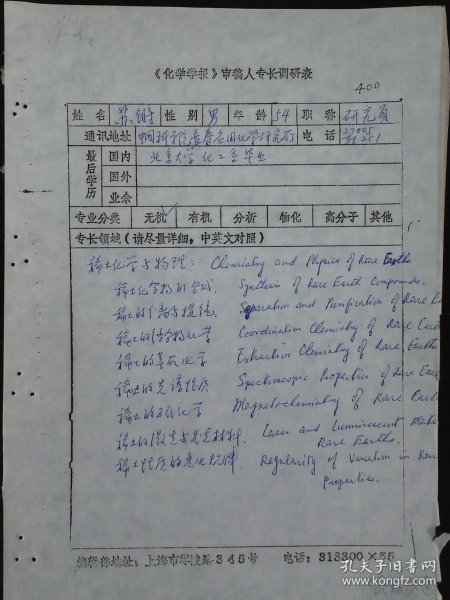 《化学学报》审稿人专长调研表
400
姓名 苏锵 性别 男 年龄 54 职称 研究员
通讯地址 中国科学院长春应用化学研究所 电话
最后学历 国内 北京大学化工系毕业
国外
业余
专业分类 无机 有机 分析 物化 高分子 其他
专长领域（请尽量详细，中英文对照）
稀土化学与物理： Chemistry and Physics of Rare Earths
稀土化合物的合成. Synthesis of Rare Earth Compounds.
稀土的分离与提纯. Separation and Purification of Rare E
稀土的络合物化学 Coordination Chemistry of Rare Eart
稀土的萃取化学 Extraction Chemistry of Rare Earth
稀土的光谱性质 Spectroscopic Properties of Rare Ea
稀土的磁化学 Magnetochemistry of Rare Eart
稀土的激光与发光材料. Laser and Luminescent Mate
Rare Earths.
稀土性质的变化规律. Regularity of Variation in Rare
Properties.
编辑部地址：上海市零陵路345号 电话：313300×55
孔夫子旧书网